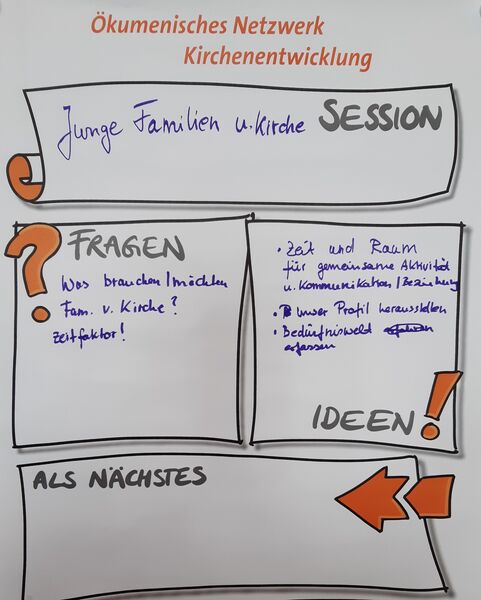 Ökumenisches Netzwerk
Kirchenentwicklung
Junge Familien u. Kirche SESSION
FRAGEN
Was brauchen/möchten
Fam. v. Kirche?
Zeitfaktor!
• Zeit und Raum
für gemeinsame Aktivität
u. Kommunikation/Beziehung
• unser Profil herausstellen
• Bedürfniswelt
erfassen
IDEEN!
ALS NÄCHSTES